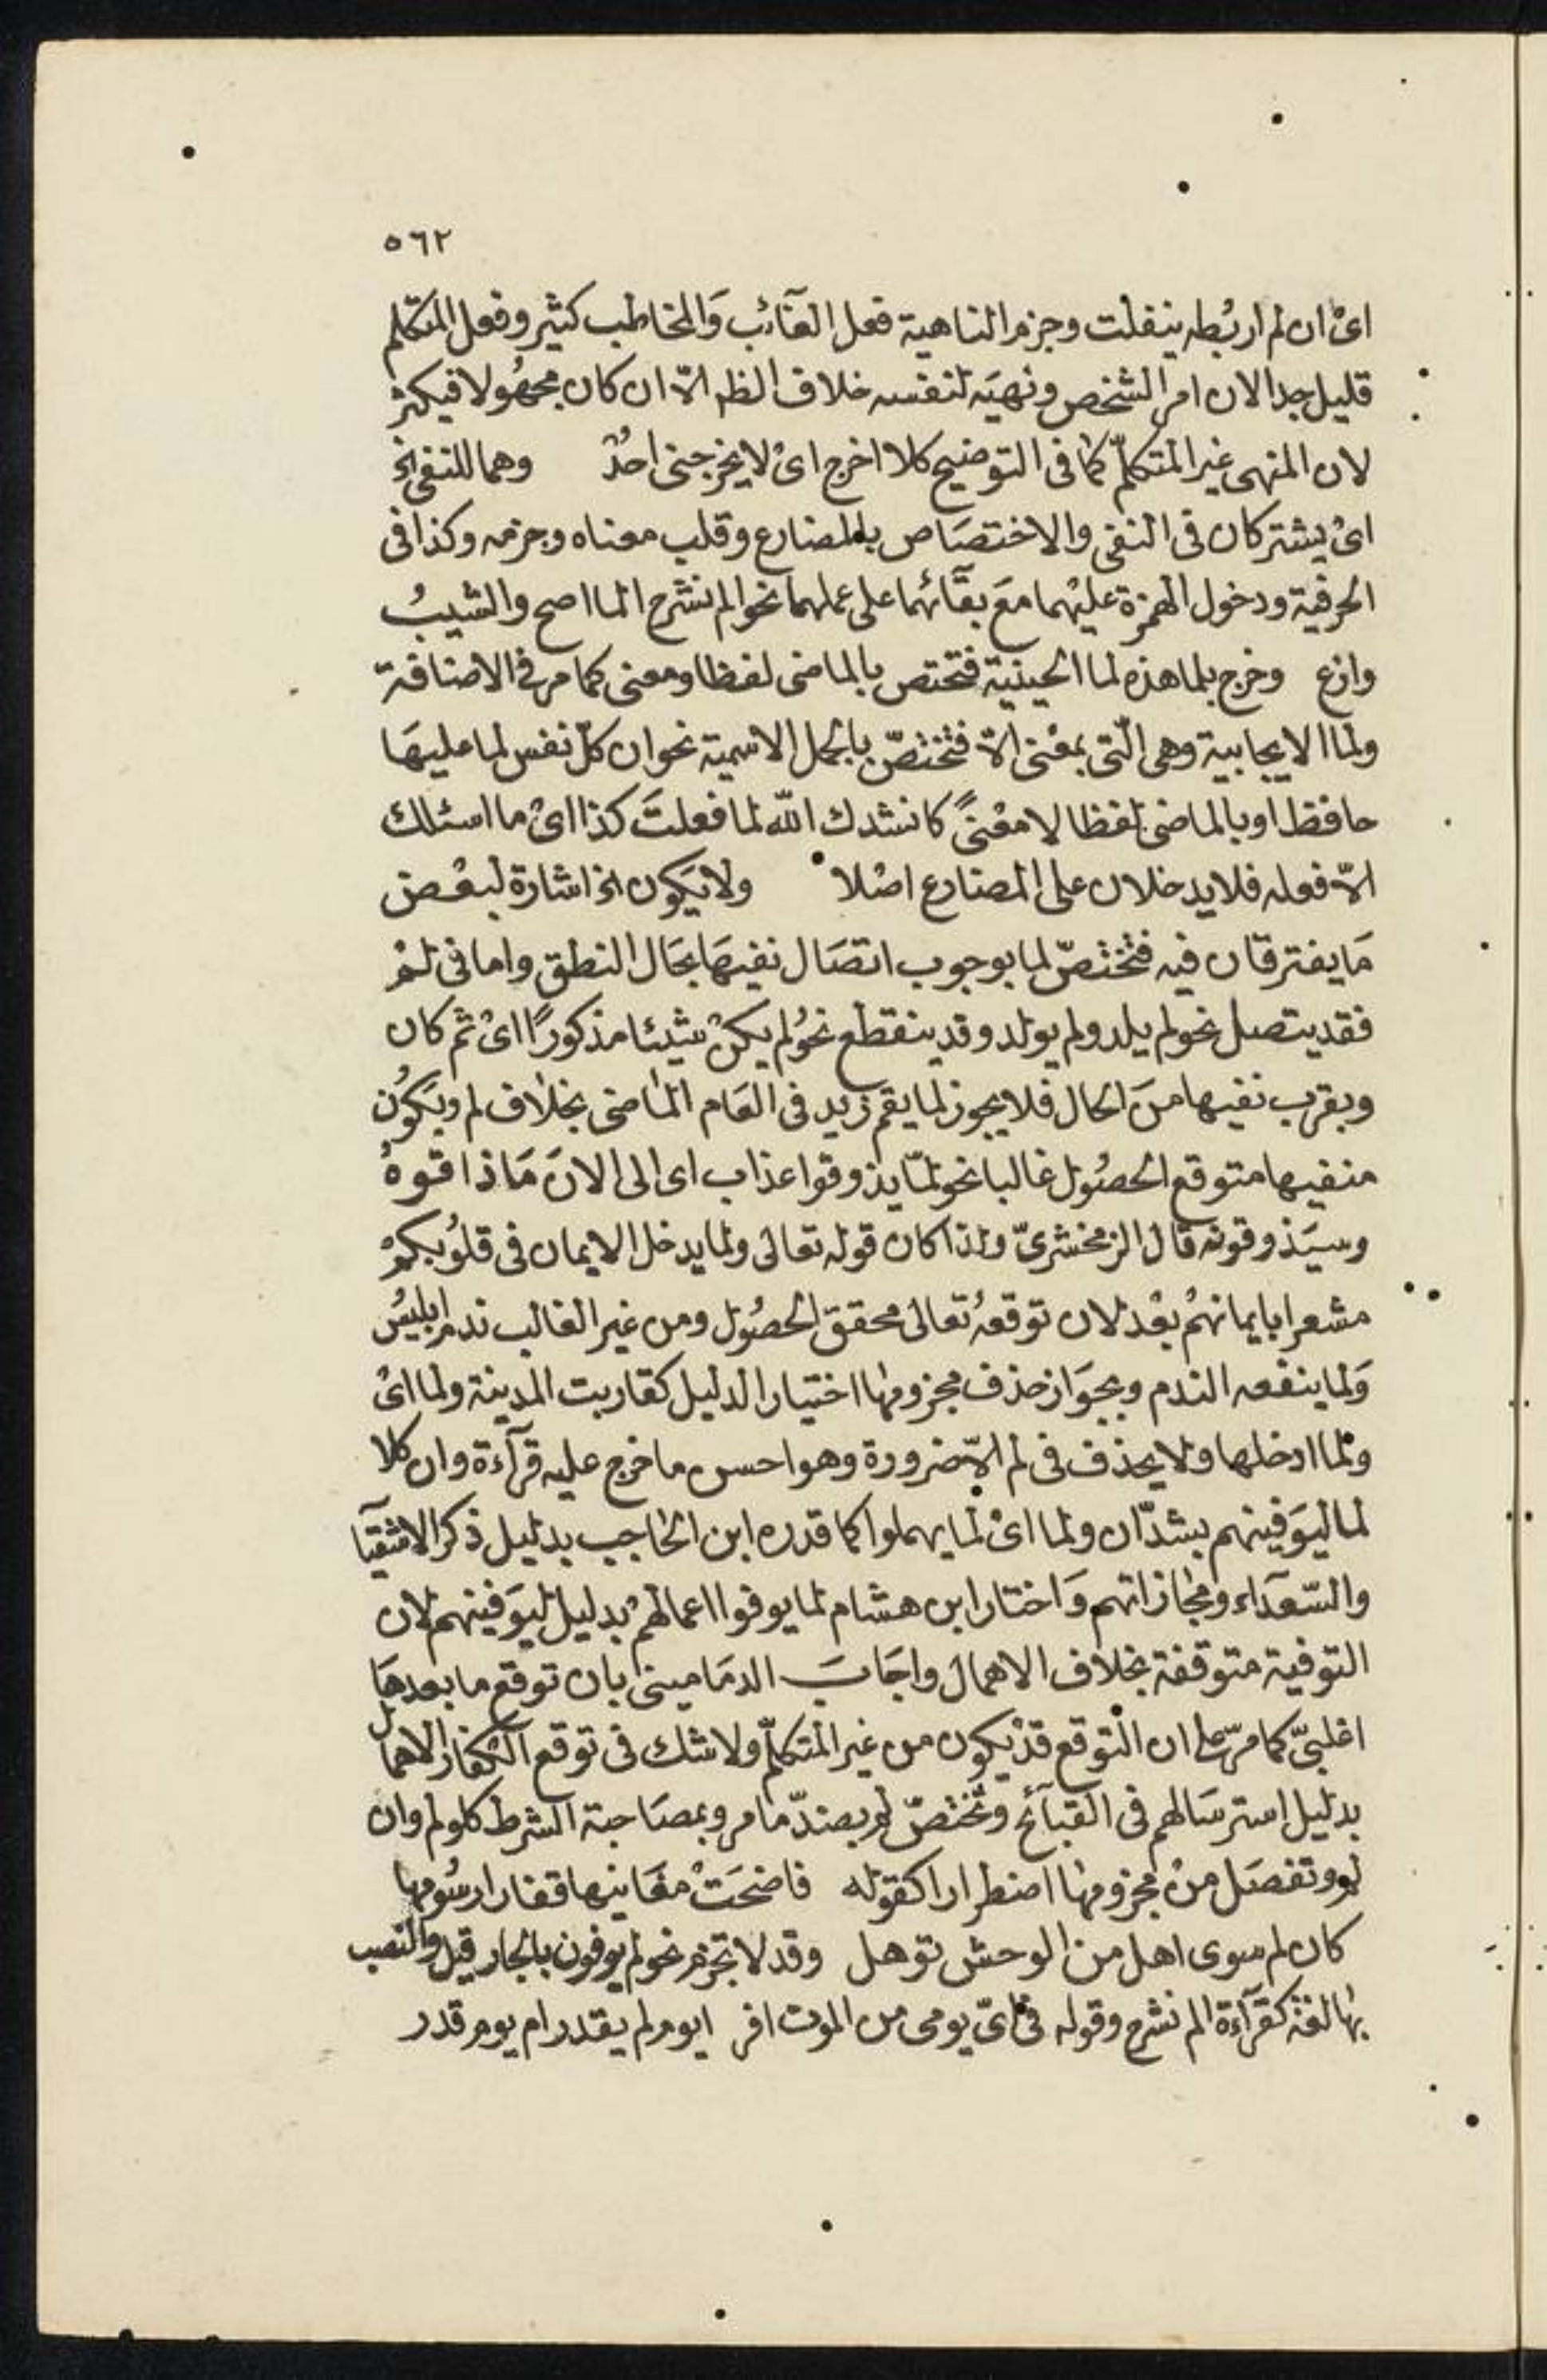 ٥٦٢
اىْ ان لم اربُطه ينفلت وجزم الناهية فعل الغآئب وَالمخاطب كثير وفعل المتكلم
قليل جدا لان امر الشخص ونهيَه لنفسه خلاف الظ الّا ان كان مجهُولا فيكثر
لان المنهى غير المتكلّم كما فى التوضيح كلا اخرج اىْ لا يخرجنى احدٌ وهما للنفى الخ
اىْ يشتركان فى النفى والاختصَاص بالمضارع وقلب معناه وجزمه وكذا فى
الحرفية ودخول الهمزة عليْهما مَع بقَآئهما على عملهما نحو الم نشرح المااصح والشيبُ
وازع وخرج بلما هذه لما الحينية فتختص بالماضى لفظا ومعنى كما مر فى الاضافة
ولما الايجابية وهى الّتى بمعْنى الّا فتختصّ بالجمل الاسمية نحو ان كلّ نفس لما عليهَا
حافظ او بالماضى لفظا لا معْنىً كانشدك الله لما فعلتَ كذا اىْ ما اسئلك
الّا فعله فلا يدخلان على المضارع اصْلا ولا يَكون الخ اشارة لبعْض
مَا يفترقان فيه فتختصّ لما بوجوب اتصَال نفيهَا بحَال النطق واما فى لمْ
فقد يتصل نحو لم يلد ولم يولد وقد ينقطع نحوُ لم يكنْ شيْئا مذكورًا اىْ ثم كان
وبقرب نفيها منَ الحال فلا يجوز لما يقم زيد فى العَام المَاضى بخلاف لم وبَكوُن
منفيها متوقع الحصُول غالبا نحو لمّا يذوقوا عذاب اى الى الانَ مَا ذاقوهُ
وسيَذوقونه قال الزمخشرىّ ولذا كان قوله تعالى ولما يدخل الايمان فى قلوُبكمْ
مشعرا بايمانهمْ بعْد لان توقعهُ تعالى محقق الحصُول ومن غير الغالب ندم ابليسُ
وَلما ينفْعه الندم وبجوَاز حذف مجزومها اختيارا لدليل كقاربت المدينة ولما اىْ
ولما ادخلها ولا يحذف فى لم الّا ضرورة وهو احسن ما خرج عليه قرآءة وان كلا
لما ليوَفينهم بشدّ ان ولما اىْ لما يهملوا كما قدره ابن الحاجب بدليل ذكر الاشقيآ
والسّعدَاء ومجازاتهم وَاختار ابن هشام لما يوفوا اعمالهمْ بدليل ليوَفينهم لان
التوفية متوقعة بخلاف الاهمال واجَابَ الدمَامينى بان توقع ما بعدهَا
اغلبىّ كما مرّ على ان التوقع قدْ يكون من غير المتكلّم ولا شك فى توقع الكفار الاهمال
بدليل استرسَالهم فى القبآئح وتَختصّ لم بضدّ ما مر وبمصَاحبة الشرط كلو لم وان
لم وتفصَل منْ مجزومها اضطرارا كقوله فاضحَتْ مغَانيها قفارا رسُومها
كان لم سوى اهل من الوحش توهل وقد لا تجزم نحو لم يوفون بالجار قيل والنصب
بها لغة كقرآءة الم نشرح وقوله فى اىّ يومى من الموت افر ايوم لم يقدر ام يوم قدر